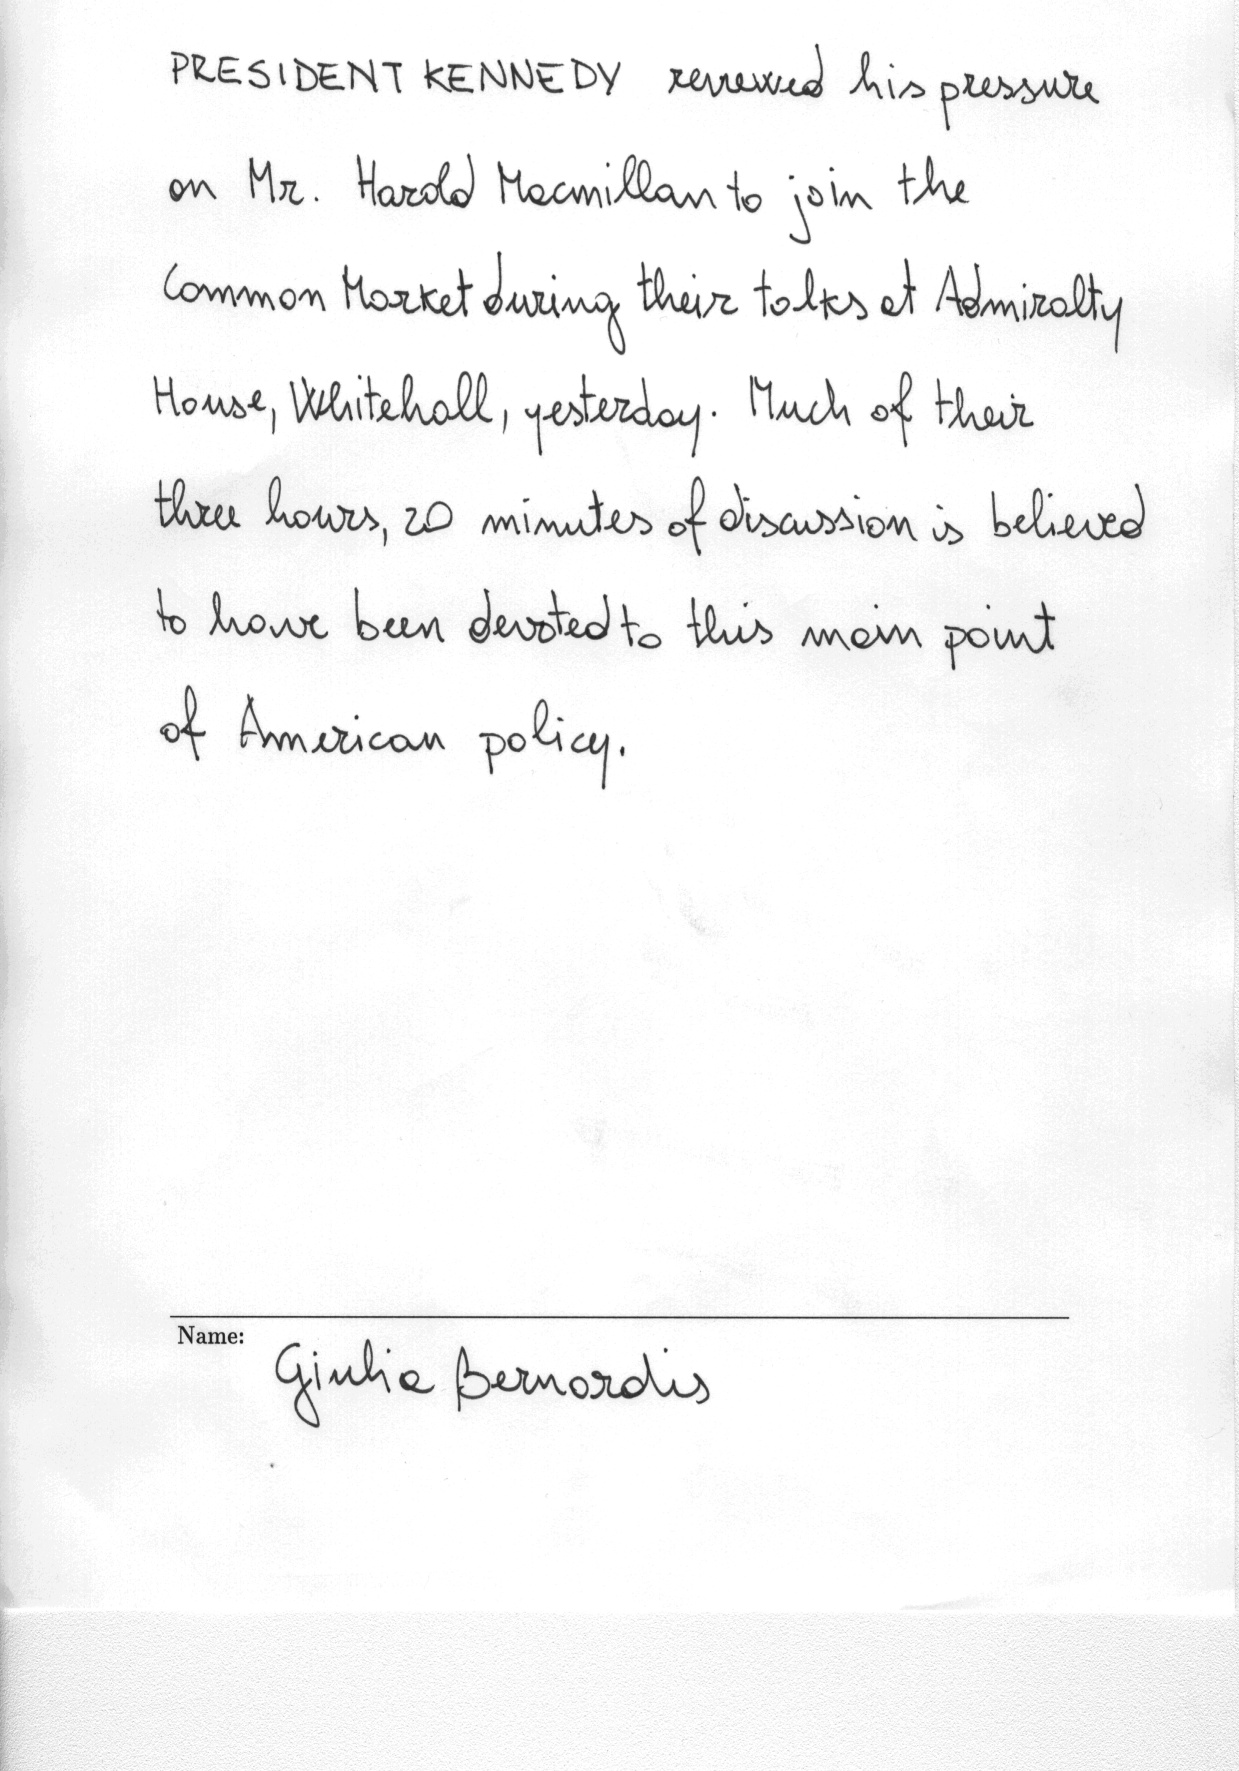 PRESIDENT KENNEDY renewed his pressure
on Mr. Harold Macmillan to join the
Common Market during their talks at Admiralty
House, Whitehall, yesterday. Much of their
three hours, 20 minutes of discussion is believed
to have been devoted to this main point
of American policy.
Name:
Giulia Bernardis